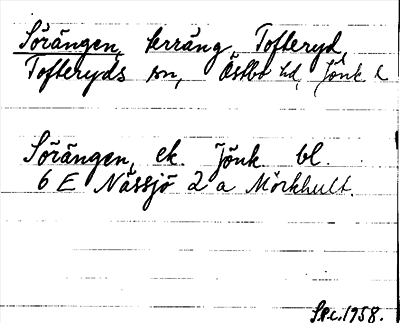 Sörängen, terräng, Tofteryd,
Tofteryds sn, Östbo hd, Jönk l
Sörängen, ek. Jönk bl.
6 E Nässjö 2 a Mörkhult.
Spc.1958.